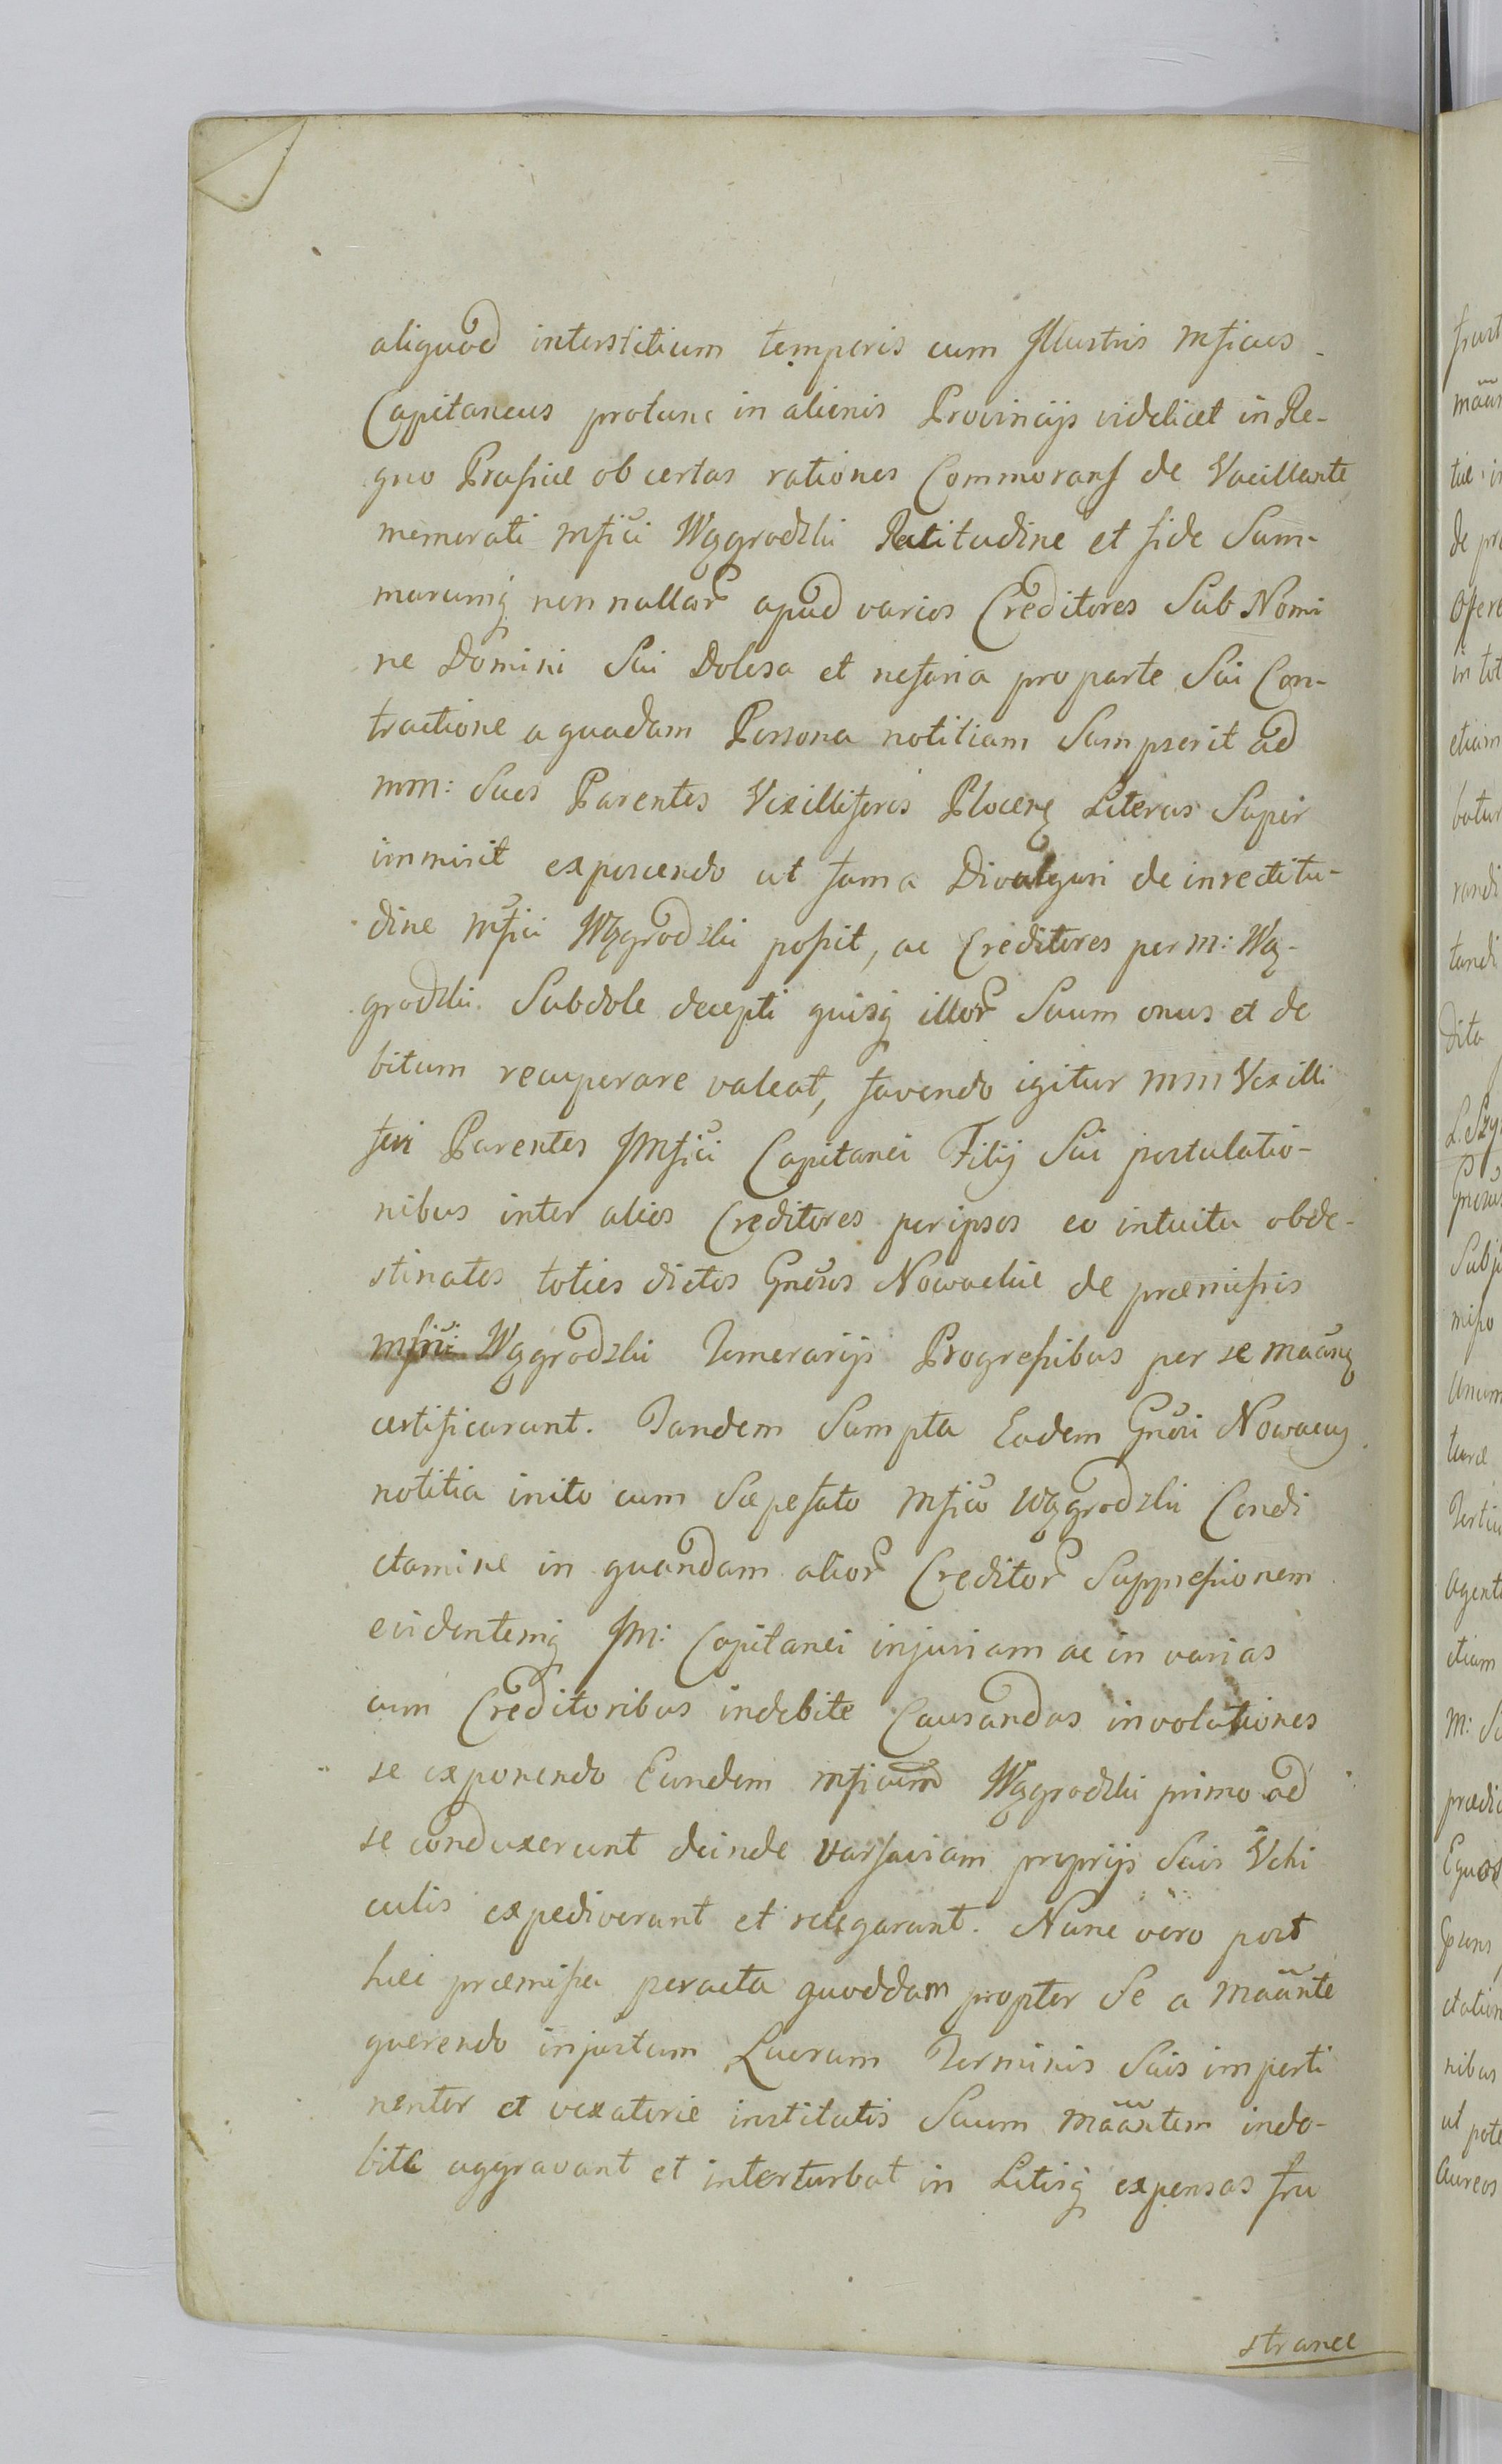 aliquod interstitium temporis cum Jllustris Mficus
Capitaneus protunc in alienis Provincijs videlicet in Re-
gno Prussiæ ob certas rationes Commorans de Vacillante
memorati Mfici Wygrodzki Rectitudine et fide Sum-
marumq non nullar apud varios Creditores Sub Nomi
ne Domini Sui Dolosa et nefaria pro parte Sui Con-
tractione a quadam Persona notitiam Sumpserit ad
MM: Suos Parentes Vexilliferos Plocens Literas Super
immisit exposcendo ut fama Divulgari de inrectitu-
dine Mfici Wygrodzki possit, ac Creditores per M: Wy-
grodzki Subdole decepti quisq illor Suum onus et de
bitum recuperare valeat, favendo igitur MM Vexilli
feri Parentes JMfici Capitanei Filij Sui postulatio-
nibus inter alios Creditores per ipsos eo intuitu obde-
stinatos toties dictos Gnosos Nowackie de præmissis
Mfici Wygrodzki Temerarijs Progressibus per se maanq
certificarunt. Tandem Sumpta Eadem Gnosi Nowaccy
notitia inito cum Sæpefato Mfico Wygrodzki Condi
ctamine in quandam alior Creditor Suppressionem
evidentemq JM: Capitanei injuriam ac in varias
cum Creditoribus indebite Causandas involutiones
se exponendo Eundem Mficum Wygrodzki primo ad
se conduxerunt deinde Varsaviam proprijs Suis Vehi
culis expediverunt et relegarunt. Nunc vero post
hæc præmissa peracta quoddam propter Se a Maante
querendo injustum Lucrum Terminis Suis imperti
nenter et vexatorie institutis Suum Maantem inde-
bite aggravant et interturbat in Litisq expensas fru
stranee